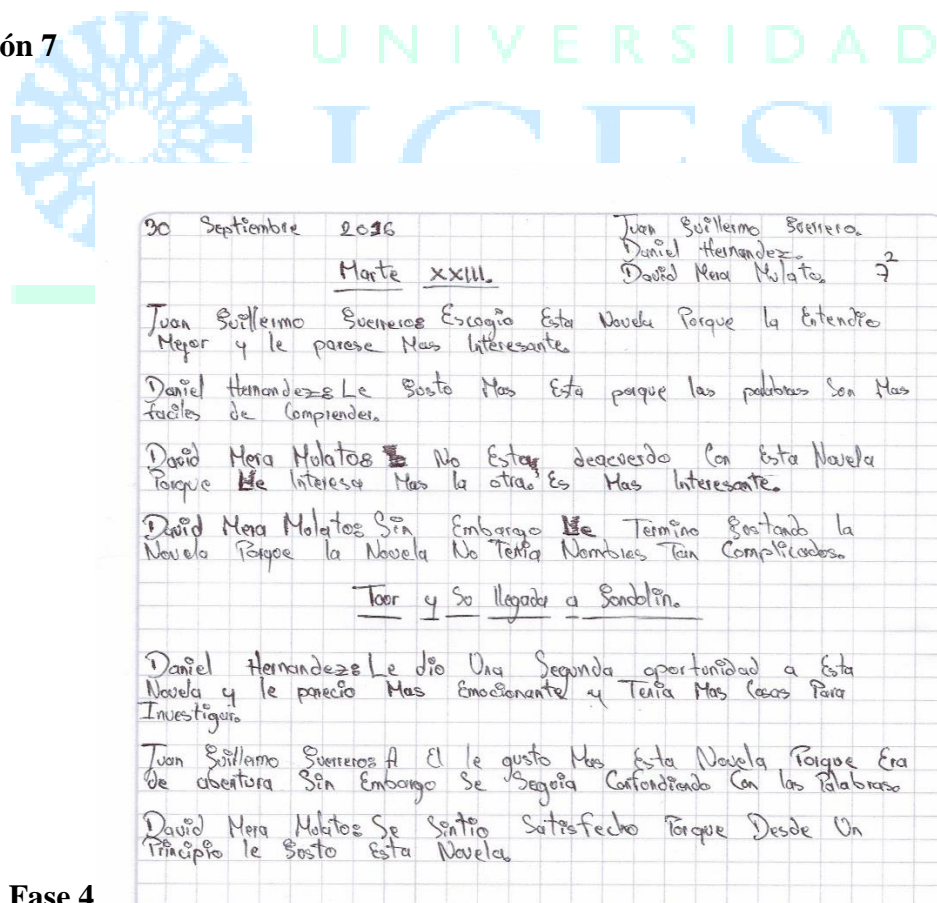 ón 7
UNIVERSIDAD
ICESI
30 Septiembre 2016
Juan Guillermo Guerrero.
Daniel Hernandez.
David Mera Mulato. 7²
Marte XXIII.
Juan Guillermo Guerrero: Escogio Esta Novela Porque la Entendio
Mejor y le parese Mas interesante.
Daniel Hernandez: Le Gusto Mas Esta porque las palabras Son Mas
faciles de Comprender.
David Mera Mulato: No Esta deacuerdo Con Esta Novela
Porque le Interesa Mas la otra Es Mas Interesante.
David Mera Mulato: Sin Embargo le Termino Gustando la
Novela Porque la Novela No Tenia Nombres Tan Complicados.
Tuor y Su llegada a Gondolin.
Daniel Hernandez: Le dio Una Segunda oportunidad a Esta
Novela y le parecio Mas Emocionante y Tenia Mas Cosas Para
Investigar.
Juan Guillermo Guerrero: A El le gusto Mas Esta Novela Porque Era
de abentura Sin Embargo Se Seguia Confondiendo Con las Palabras.
David Mera Mulato: Se Sintio Satisfecho Porque Desde Un
Principio le Gusto Esta Novela.
Fase 4